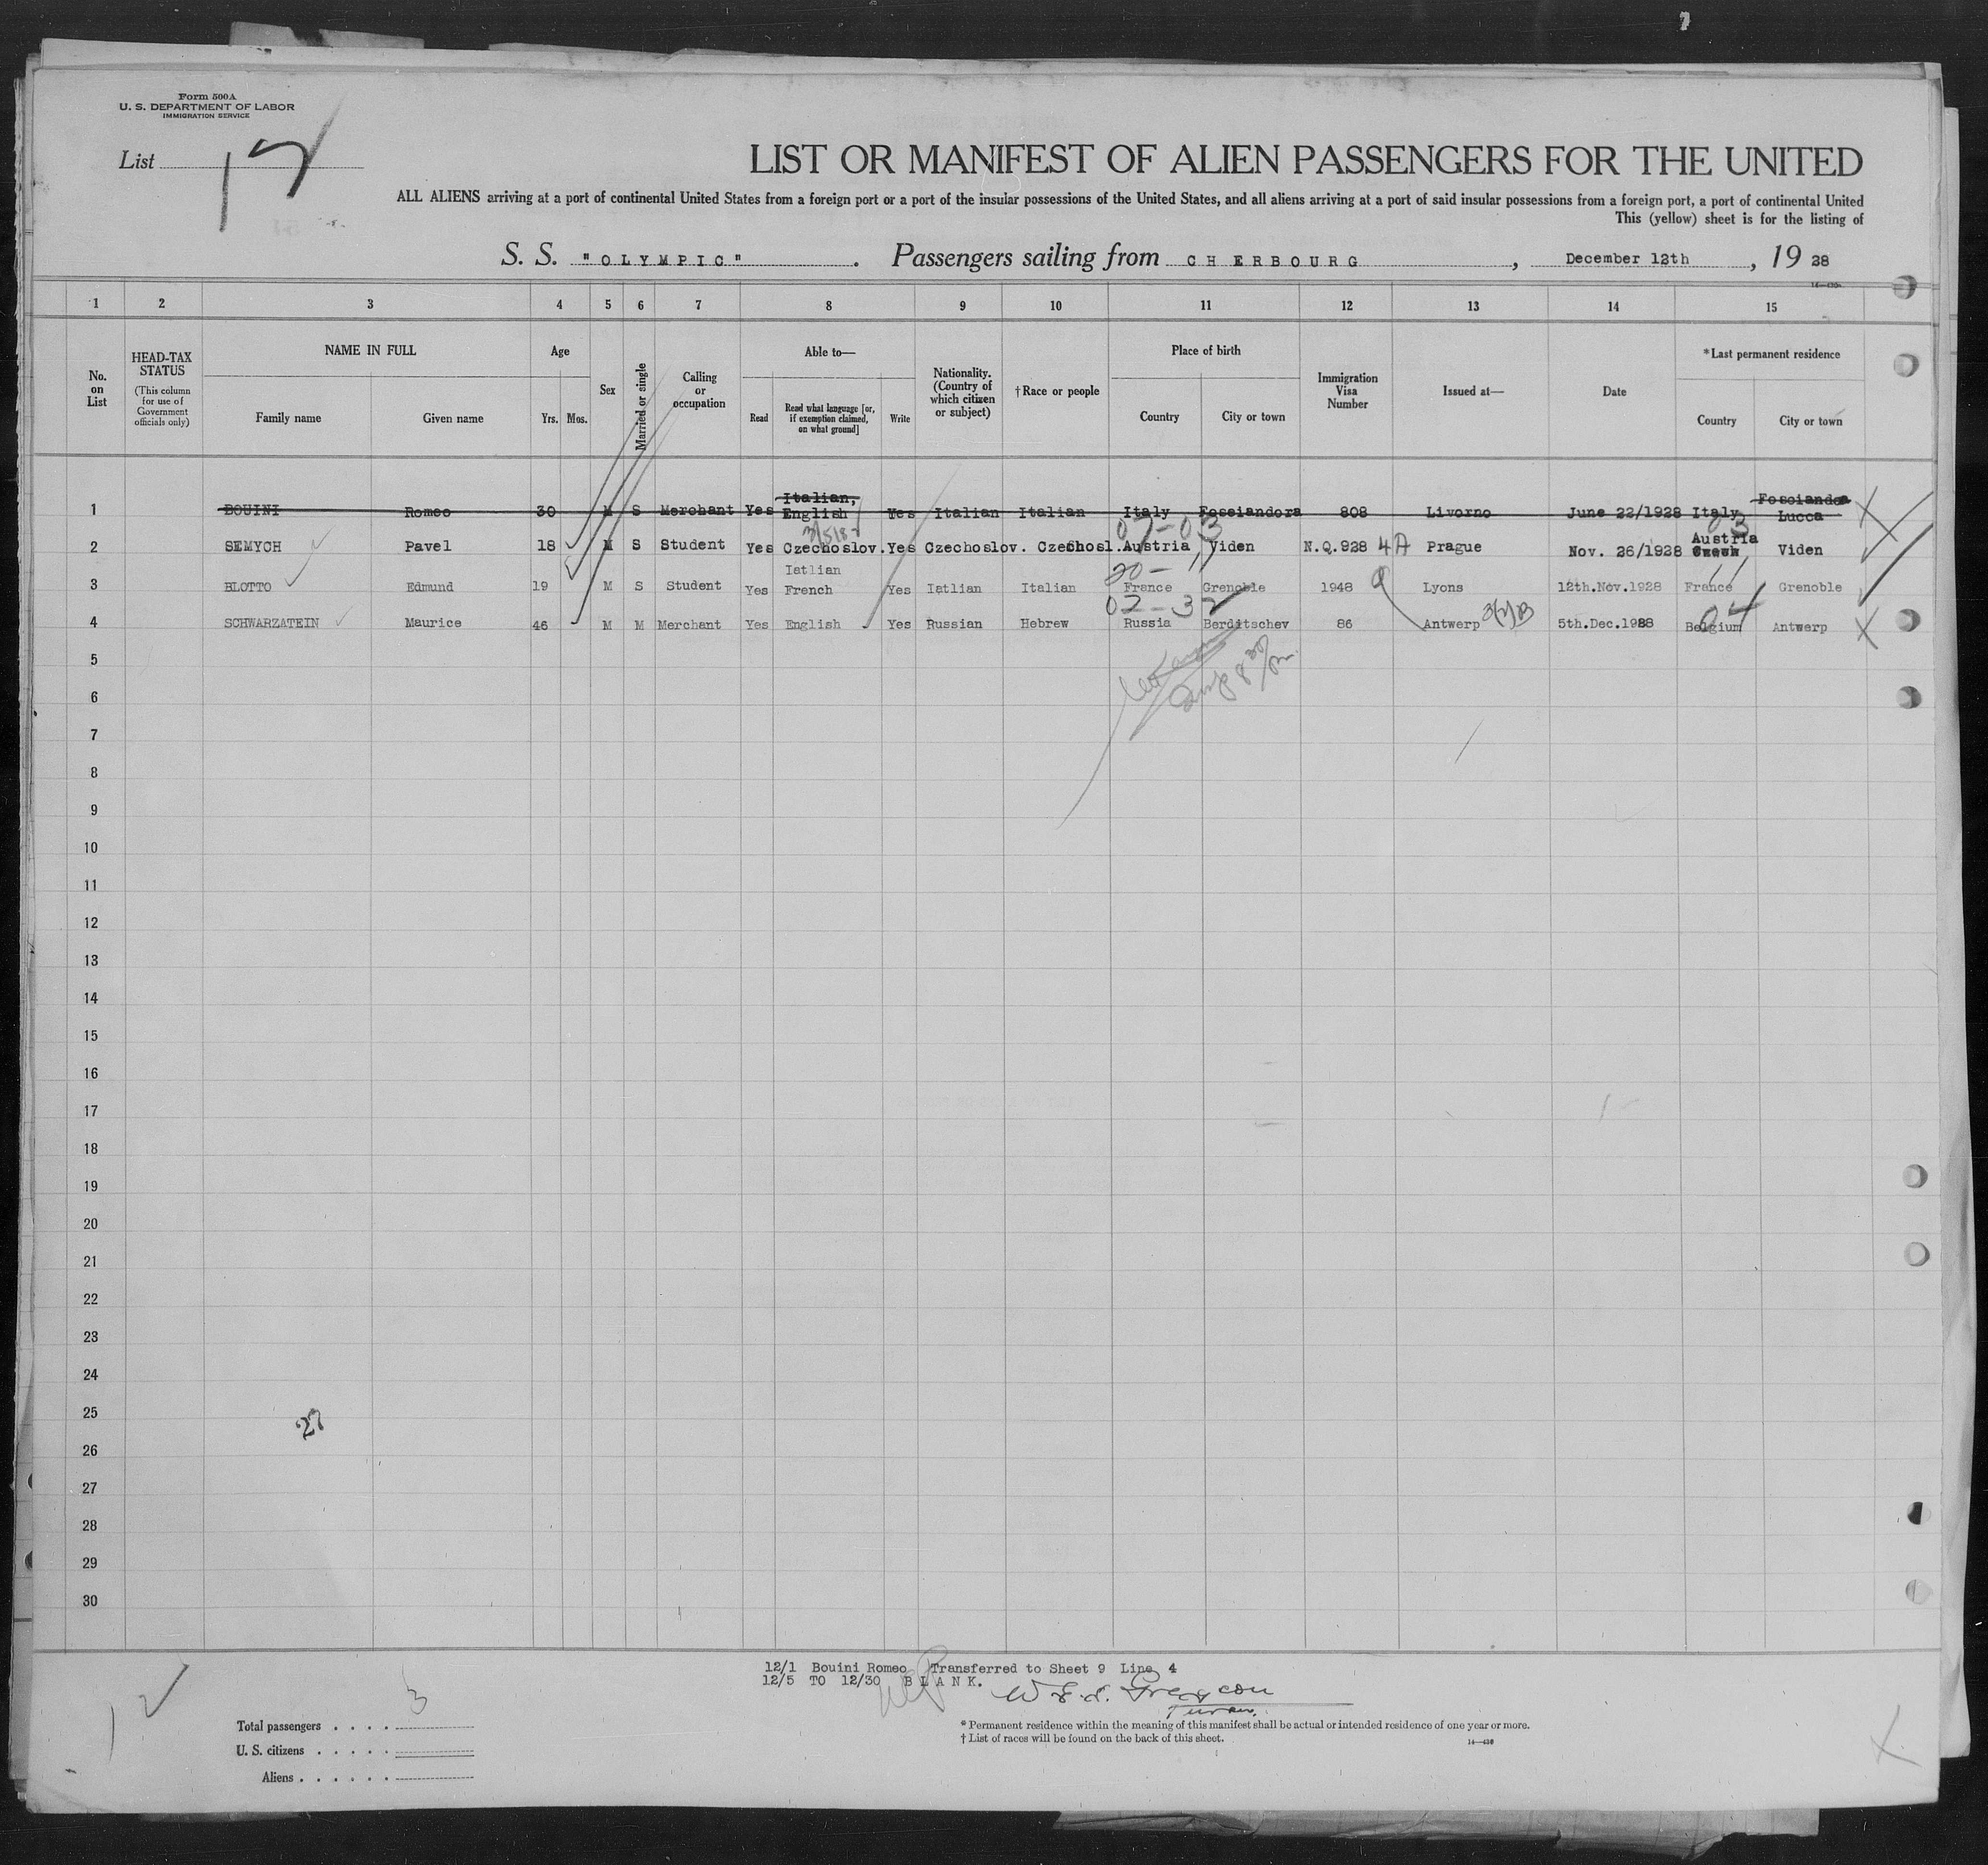 Form 500A
U. S. DEPARTMENT OF LABOR
IMMIGRATION SERVICE
List 12
LIST OR MANIFEST OF ALIEN PASSENGERS FOR THE UNITED
ALL ALIENS arriving at a port of continental United States from a foreign port or a port of the insular possessions of the United States, and all aliens arriving at a port of said insular possessions from a foreign port, a port of continental United
This (yellow) sheet is for the listing of
S. S. "OLYMPIC" . Passengers sailing from CHERBOURG , December 12th , 19 28
14—430
1 2 3 4 5 6 7 8 9 10 11 12 13 14 15
No. on List
HEAD-TAX STATUS
(This column for use of Government officials only)
NAME IN FULL
Family name Given name
Age
Yrs. Mos.
Sex
Married or single
Calling or occupation
Able to—
Read
Read what language [or, if exemption claimed, on what ground]
Write
Nationality. (Country of which citizen or subject)
† Race or people
Place of birth
Country City or town
Immigration Visa Number
Issued at—
Date
* Last permanent residence
Country City or town
Italian, Fosciandora
1 BOUINI Romeo 30 M S Merchant Yes English Yes Italian Italian Italy Fosciandora 808 Livorno June 22/1928 Italy Lucca
07-03 03
Austria
2 SEMYCH Pavel 18 M S Student Yes Czechoslov. Yes Czechoslov. Czechosl. Austria Viden N.Q.928 4A Prague Nov. 26/1928 Czech Viden
Iatlian 20-11 11
3 BLOTTO Edmund 19 M S Student Yes French Yes Iatlian Italian France Grenoble 1948 Lyons 12th.Nov.1928 France Grenoble
02-32 04
4 SCHWARZATEIN Maurice 46 M M Merchant Yes English Yes Russian Hebrew Russia Berditschev 86 Antwerp 5th.Dec.1928 Belgium Antwerp
5
6
7
8
9
10
11
12
13
14
15
16
17
18
19
20
21
22
23
24
25
27
26
27
28
29
30
12/1 Bouini Romeo Transferred to Sheet 9 Line 4
12/5 TO 12/30 BLANK.
3
Total passengers . . . .
U. S. citizens . . . . .
Aliens . . . . . .
* Permanent residence within the meaning of this manifest shall be actual or intended residence of one year or more.
† List of races will be found on the back of this sheet.
14—430